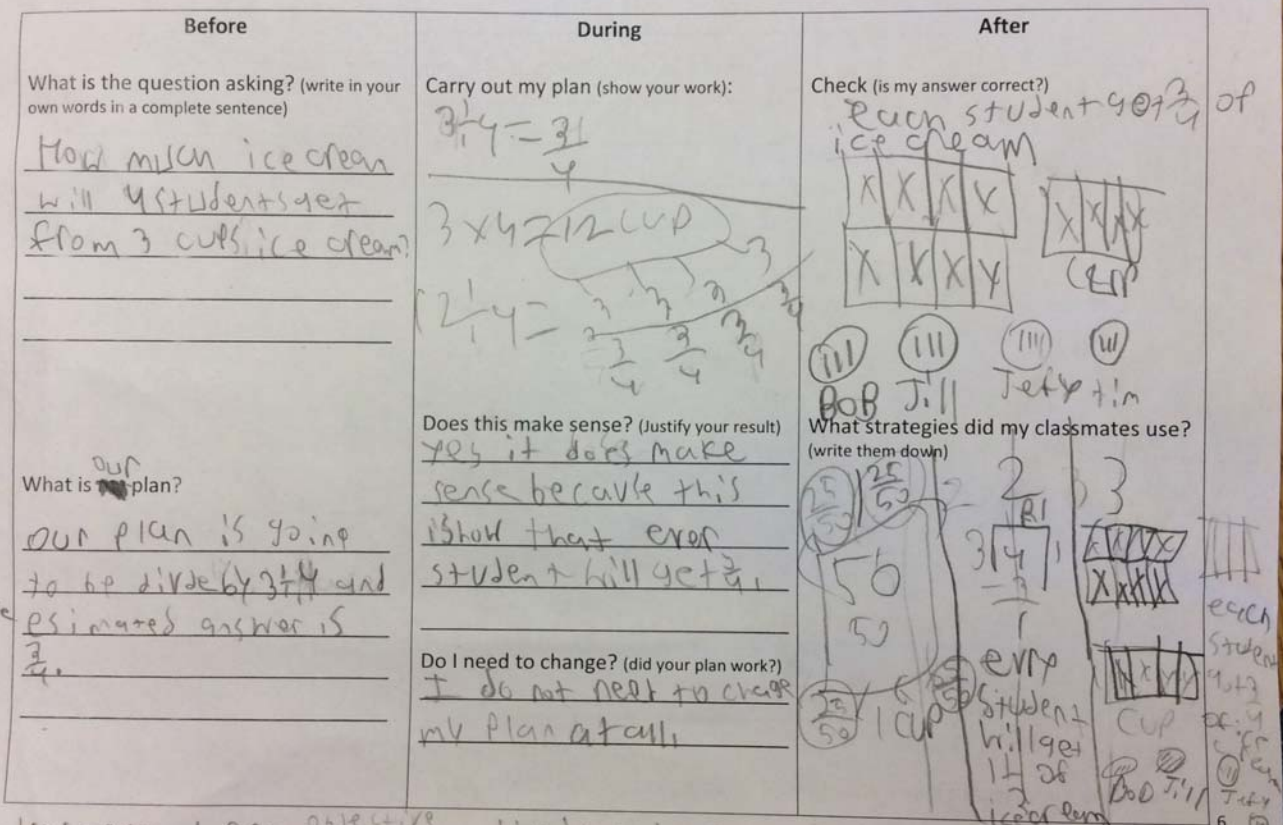 Before
What is the question asking? (write in your
own words in a complete sentence)
How much ice crean
will 4 students get
from 3 cups ice cream?
What is our plan?
our plan is going
to be divde by 3÷4 and
esimated answer is
3/4.
During
Carry out my plan (show your work):
3÷4=3/4
3x4=12 CUP
3
12÷4= 3 3 3
3/4 3/4 3/4 3/4
Does this make sense? (Justify your result)
yes it does make
sense becaule this
is how that ever
student will get 3/4.
Do I need to change? (did your plan work?)
I do not neet to chage
my plan at all.
After
Check (is my answer correct?)
each student got 3/4 of
ice cream
X X X X
X X X X
X X X X
III III III III
BOB Jill Jefy tim
What strategies did my classmates use?
(write them down)
25/50 25/50
50
25/50 1 CUP
2
R1
3 4 1
3
1
evry
student
will get
of
icecream
3
X X X X
X X X X
CUP
BoB Jill
each
student
got 3/4
Jefy
6
objective